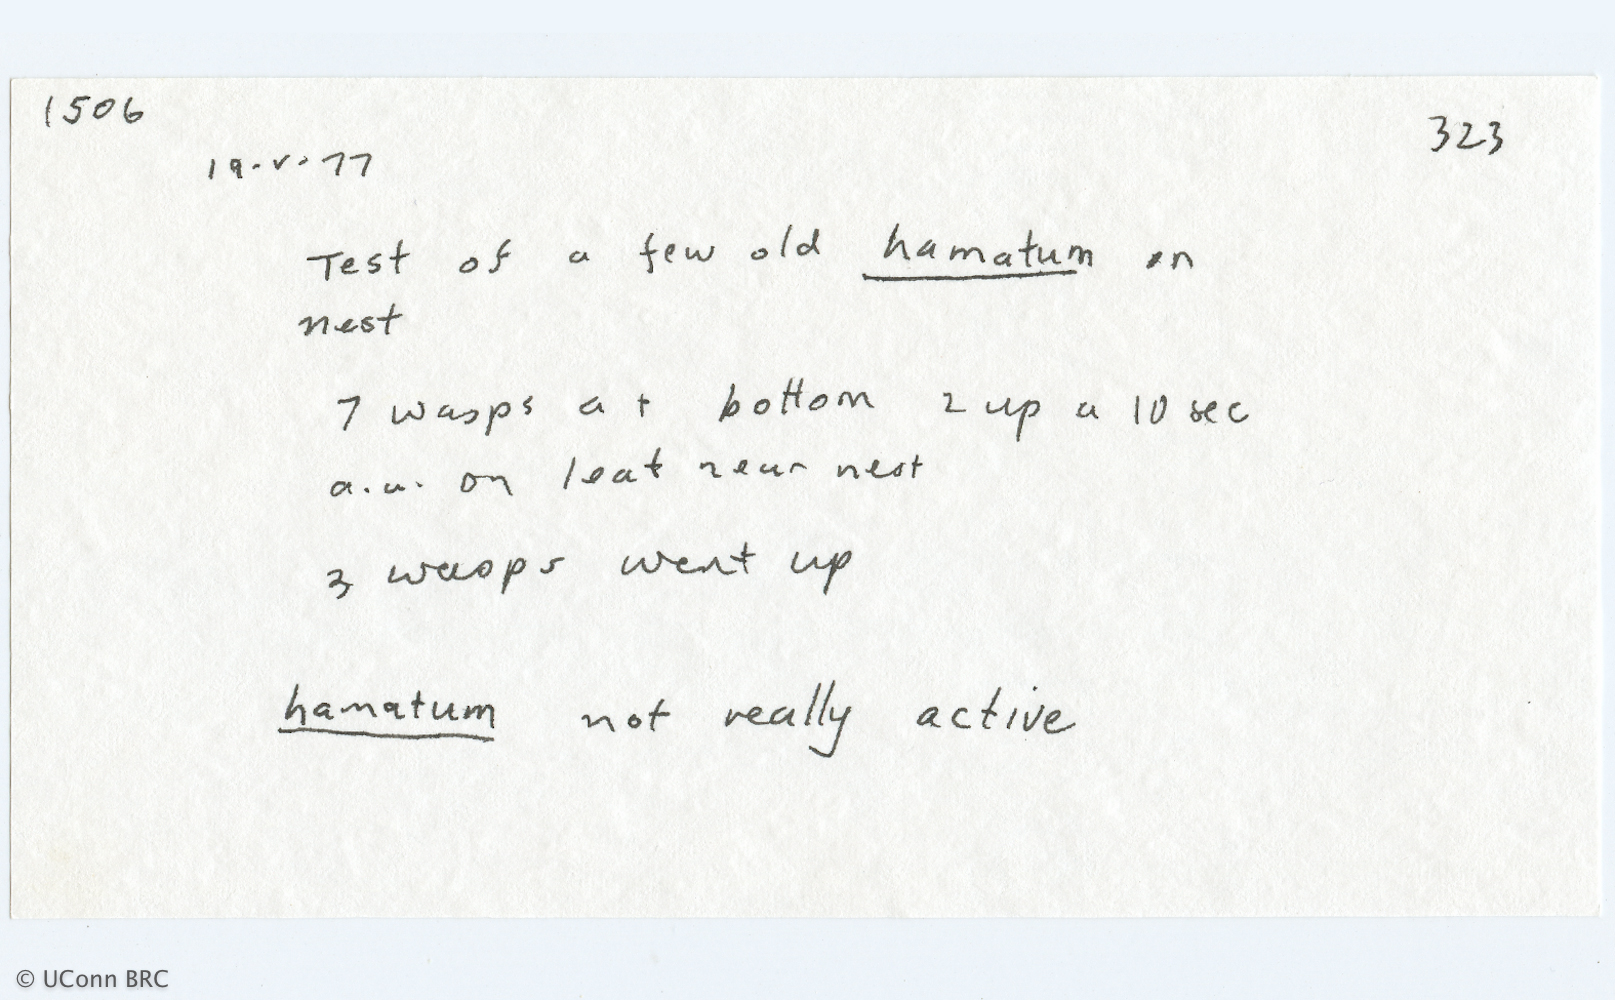 1506
323
19.v.77
Test of a few old hamatum on
nest
7 wasps at bottom 2 up a 10 sec
a.w. on leaf near nest
3 wasps went up
hamatum not really active
© UConn BRC